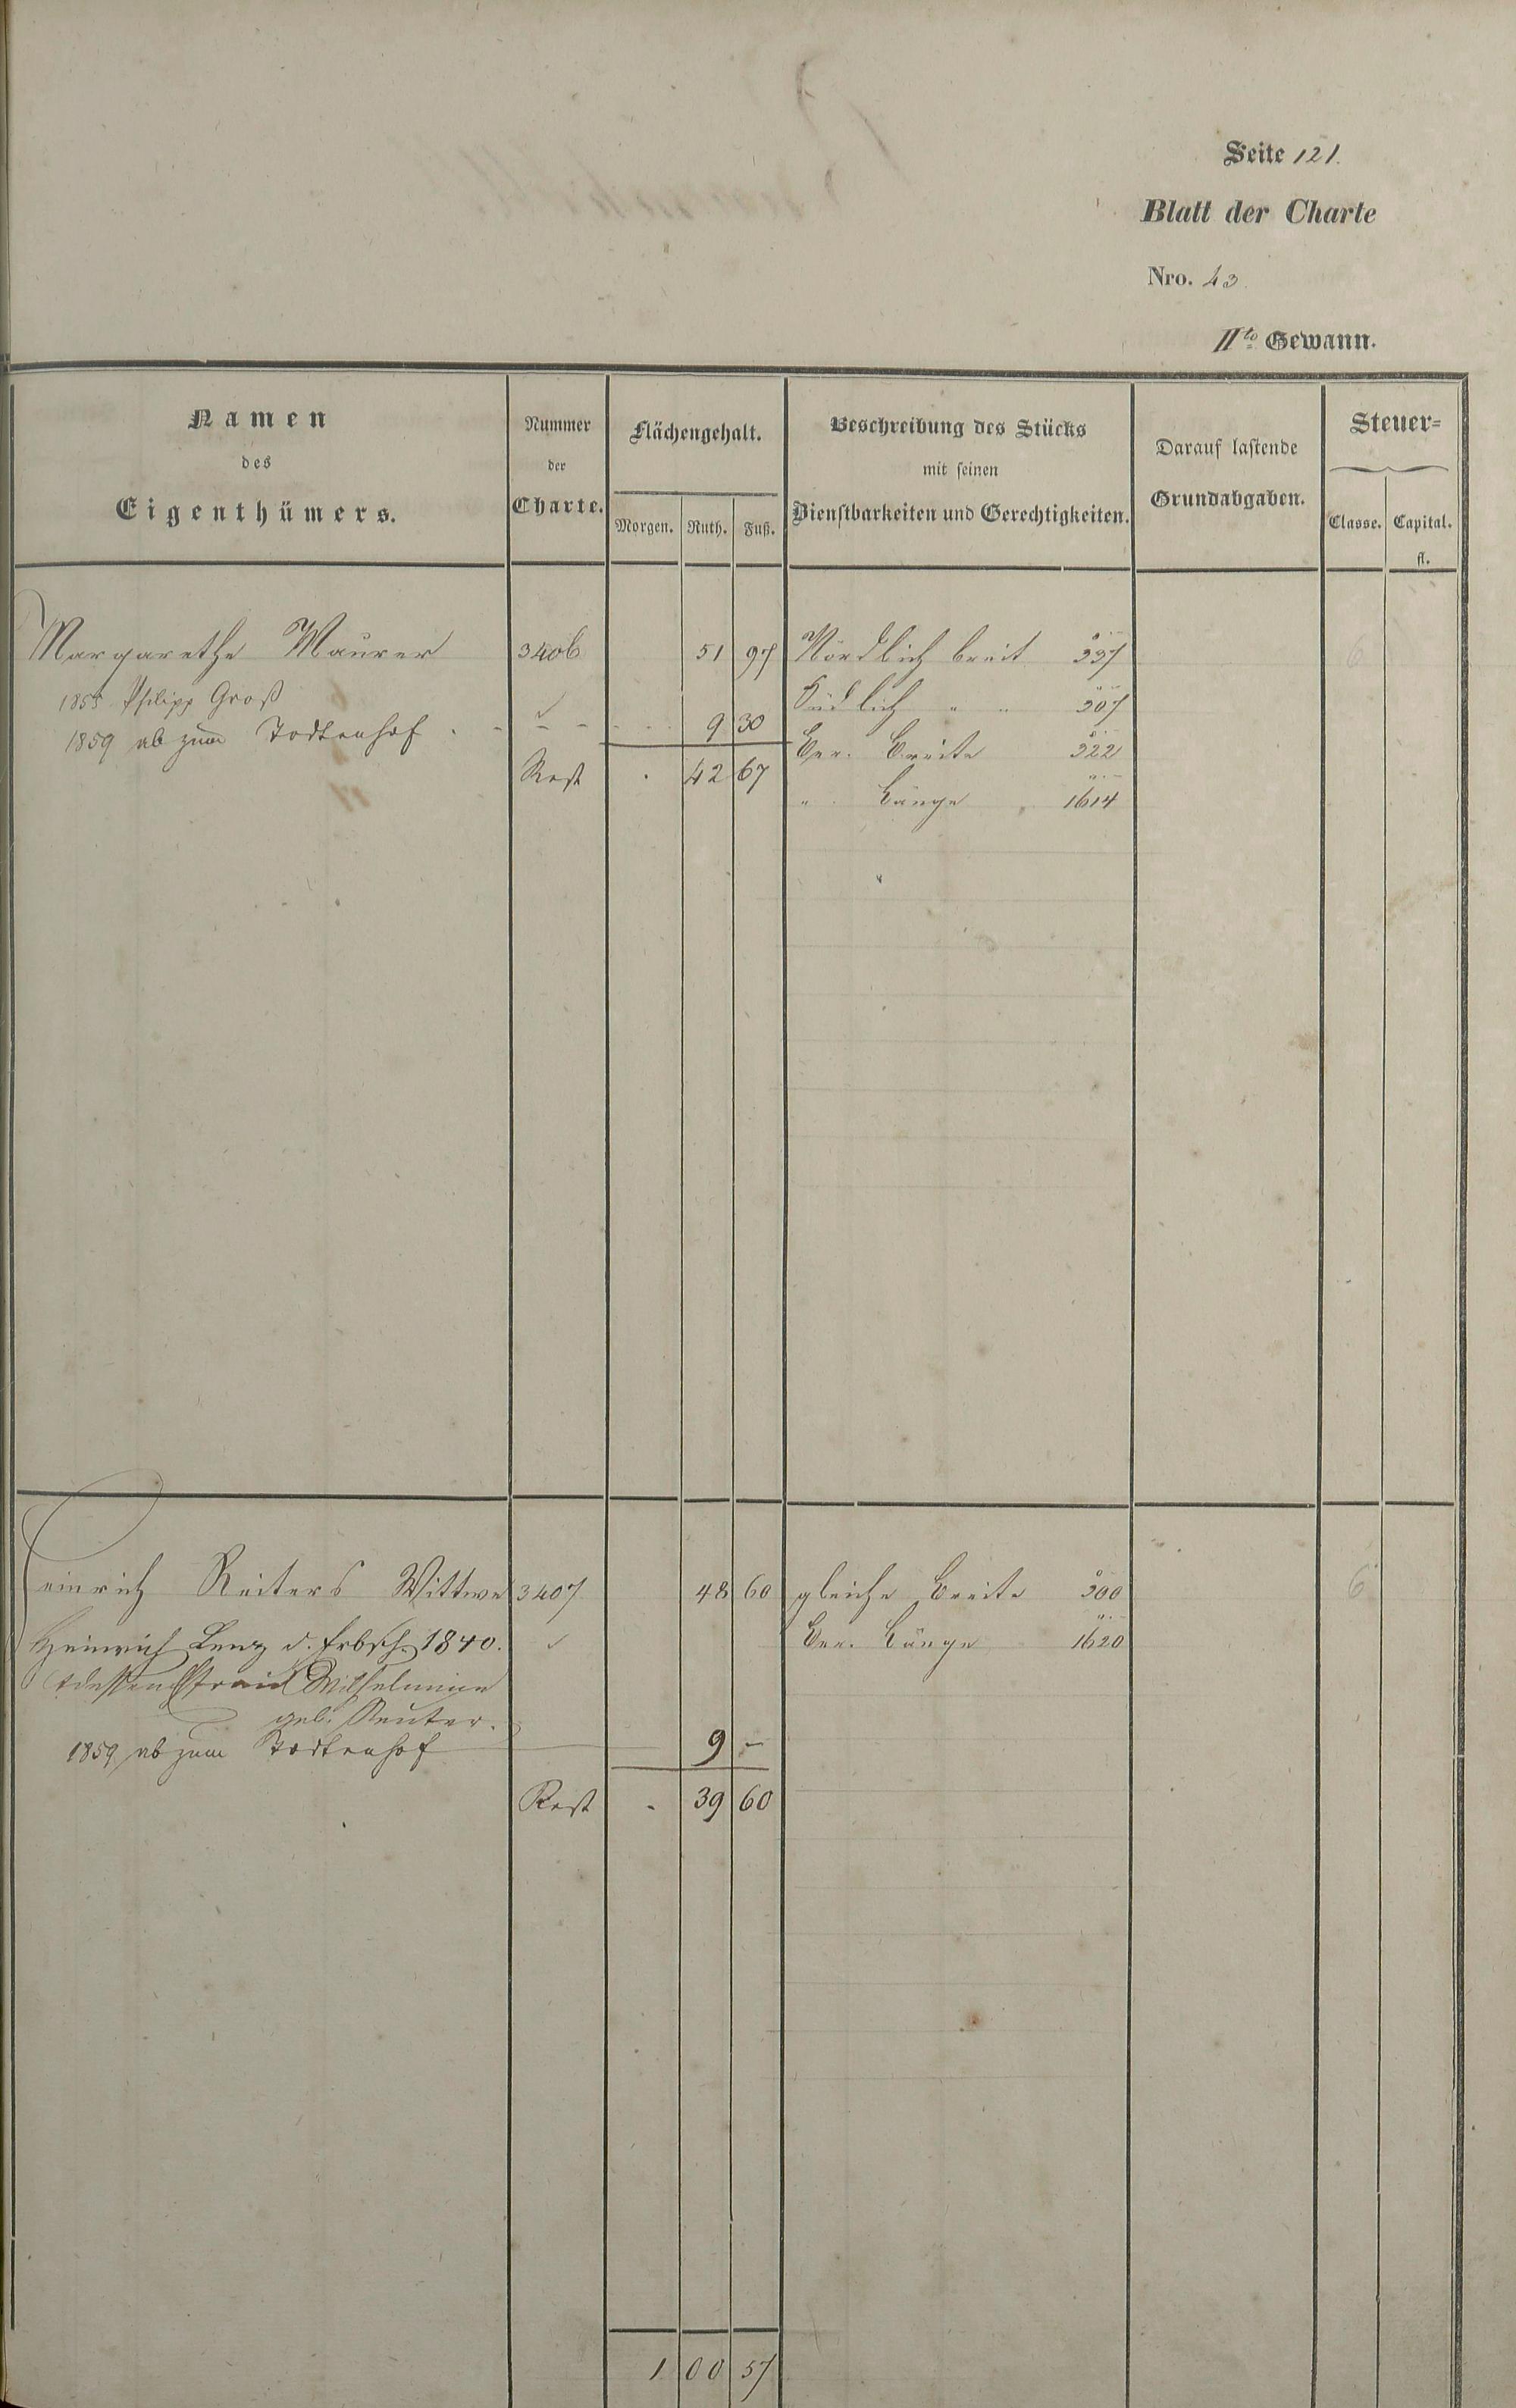 Seite 121.
Blatt der Charte
Nro. 43
IIte Gewann.
Namen des Eigenthümers.
Nummer der Charte.
Flächengehalt.
Morgen. Ruth. Fuß.
Beschreibung des Stücks mit seinen Dienstbarkeiten und Gerechtigkeiten.
Darauf lastende Grundabgaben.
Steuer=
Classe. Capital. fl.
Margarethe Maurer 3406 51 97 Nördlich breit 337 6
1855 Philipp Groß Südlich " " 307
1859 ab zum Todtenhof 9 30 Ber. Breite 322
Rest 42 67 " Länge 1614
Heinrich Reiters Wittwe 3407 48 60 gleiche Breite 300 6
Heinrich Lenz d. Erbsch. 1840. Ber. Länge 1620
Wilhelmine
geb. Reuter.
1859 ab zum Todtenhof 9 –
Rest 39 60
1 00 57